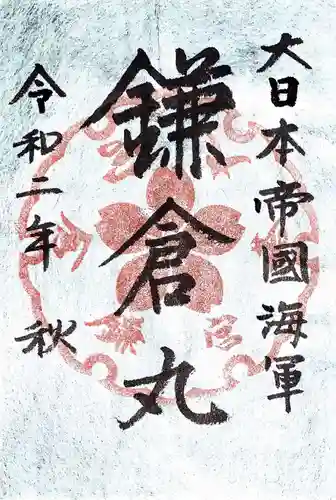 大日本帝國海軍
鎌倉丸
令和二年 秋